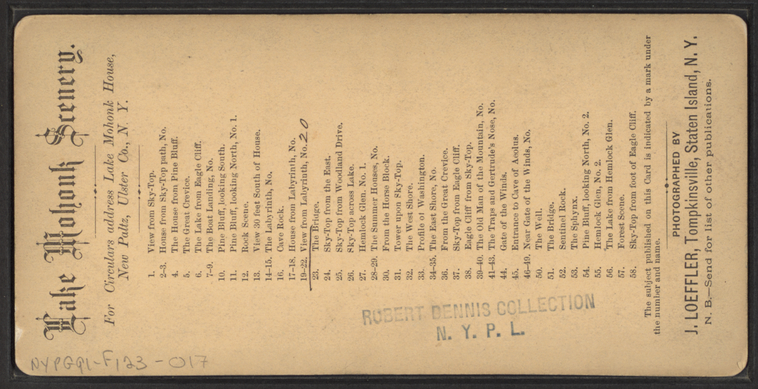 Lake Mohonk Scenery.
For Circulars address Lake Mohonk House,
New Paltz, Ulster Co., N. Y.
1. View from Sky-Top.
2-3. House from Sky-Top path, No.
4. The House from Pine Bluff.
5. The Great Crevice.
6. The Lake from Eagle Cliff.
7-9. Boat Landing, No.
10. Pine Bluff, looking South.
11. Pine Bluff, looking North, No. 1.
12. Rock Scene.
13. View 30 feet South of House.
14-15. The Labyrinth, No.
16. Cave Rock.
17-18. House from Labyrinth, No.
19-22. View from Labyrinth, No. 20
23. The Bridge.
24. Sky-Top from the East.
25. Sky-Top from Woodland Drive.
26. Sky-Top across Lake.
27. Hemlock Glen, No. 1.
28-29. The Summer Houses, No.
30. From the Horse Block.
31. Tower upon Sky-Top.
32. The West Shore.
33. Profile of Washington.
34-35. The East Shore, No.
36. From the Great Crevice.
37. Sky-Top from Eagle Cliff.
38. Eagle Cliff from Sky-Top.
39-40. The Old Man of the Mountain, No.
41-43. The Traps and Gertrude's Nose, No.
44. Gate of the Winds.
45. Entrance to Cave of Aeolus.
46-49. Near Gate of the Winds, No.
50. The Well.
51. The Bridge.
52. Sentinel Rock.
53. The Sphynx.
54. Pine Bluff, looking North, No. 2.
55. Hemlock Glen, No. 2.
56. The Lake from Hemlock Glen.
57. Forest Scene.
58. Sky-Top from foot of Eagle Cliff.
The subject published on this Card is indicated by a mark under
the number and name.
PHOTOGRAPHED BY
J. LOEFFLER, Tompkinsville, Staten Island, N. Y.
N. B.—Send for list of other publications.
ROBERT DENNIS COLLECTION
N. Y. P. L.
NYPG91-F123-017